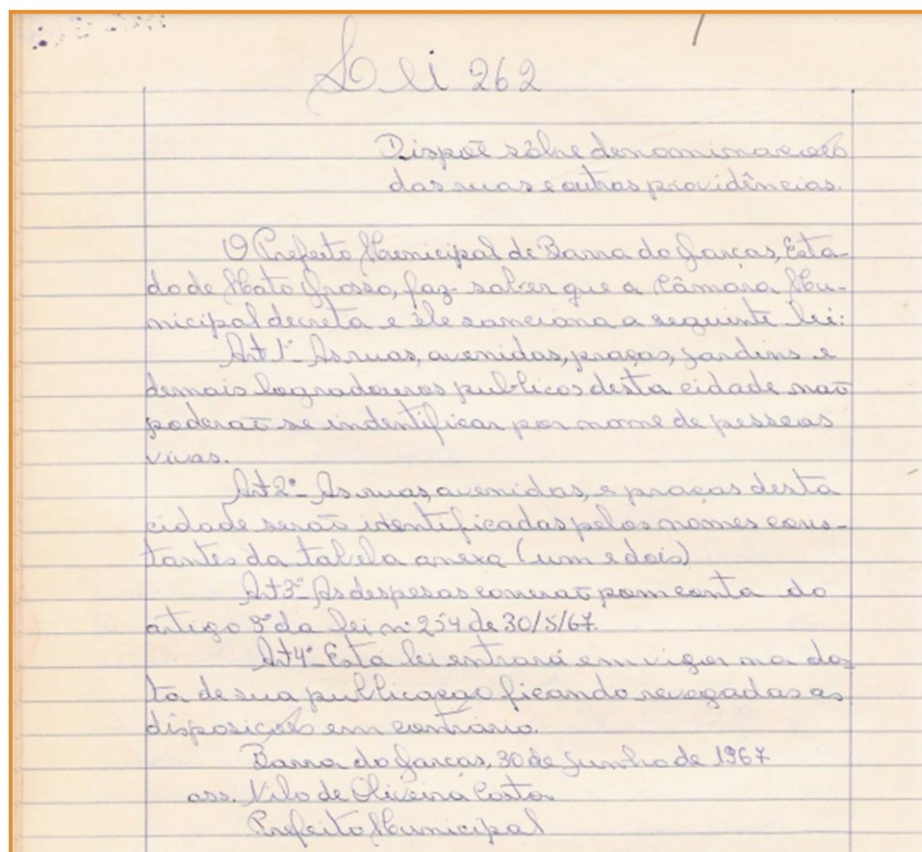 Lei 262
Dispoẽ sôbre denominacoẽs
das ruas e outras providências.
O Prefeito Municipal de Barra do Garcas, Esta-
do de Mato Grosso, faz saber que a Câmara Mu-
nicipal decreta e êle sanciona a seguinte lei:
Art 1º- As ruas, avenidas, praças, jardins e
demais logradouros publicos desta cidade naõ
poderaõ se indentificar por nome de pessoas
vivas.
Art 2º- As ruas, avenidas, e praças desta
cidade seraõ identificadas pelos nomes cons-
tantes da tabela anexa (um e dois)
Art 3º- As despesas correraõ por conta do
artigo 3º da lei nº 254 de 30/5/67.
Art 4º- Esta lei entrará em vigor na da-
ta de sua publicaçaõ ficando revogadas as
disposiçoẽs em contrário.
Barra do Garcas, 30 de Junho de 1967
ass. Nilo de Oliveira Costa
Prefeito Municipal